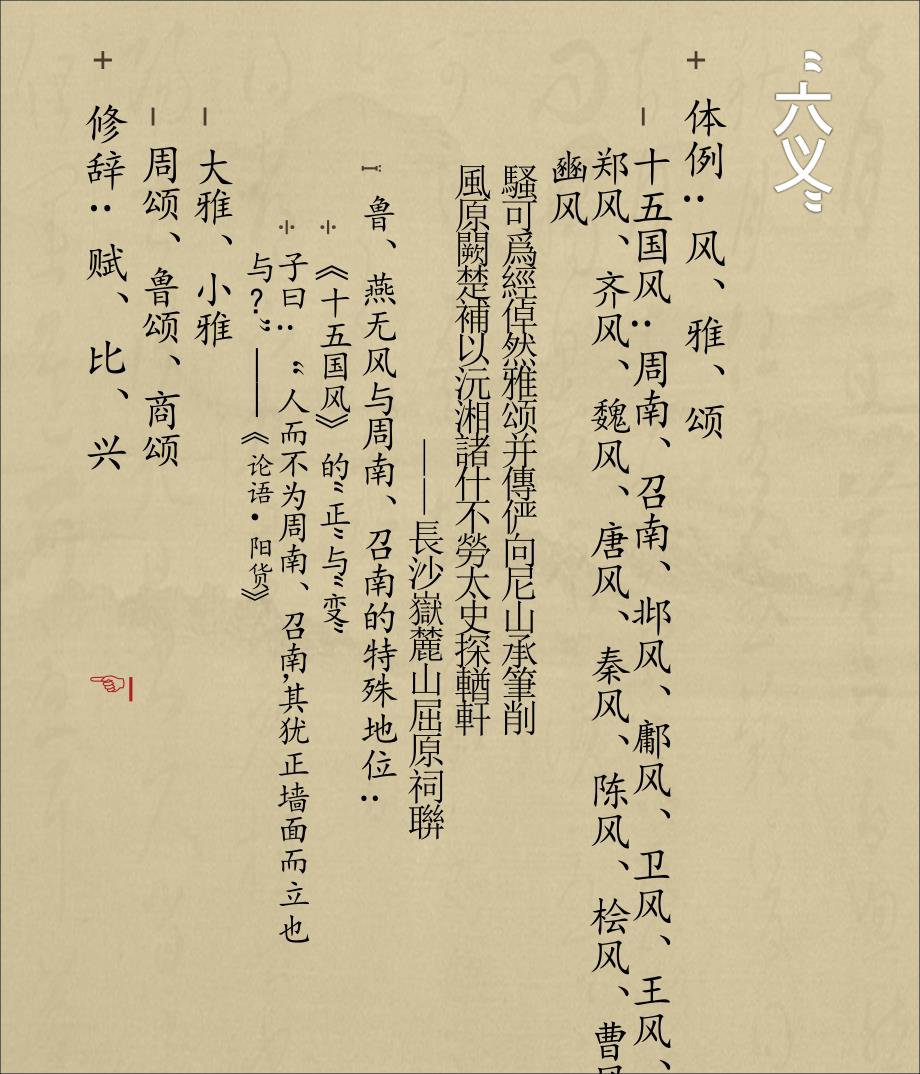 “六义”
+ 体例：风、雅、颂
– 十五国风：周南、召南、邶风、鄘风、卫风、王风、
郑风、齐风、魏风、唐风、秦风、陈风、桧风、曹风
豳风
騷可爲經倬然雅颂并傳俨向尼山承筆削
風原闕楚補以沅湘諸什不勞太史探輶軒
——長沙嶽麓山屈原祠聯
鲁、燕无风与周南、召南的特殊地位：
《十五国风》的“正”与“变”
子曰：“人而不为周南、召南,其犹正墙面而立也
与？”——《论语•阳货》
– 大雅、小雅
– 周颂、鲁颂、商颂
+ 修辞：赋、比、兴